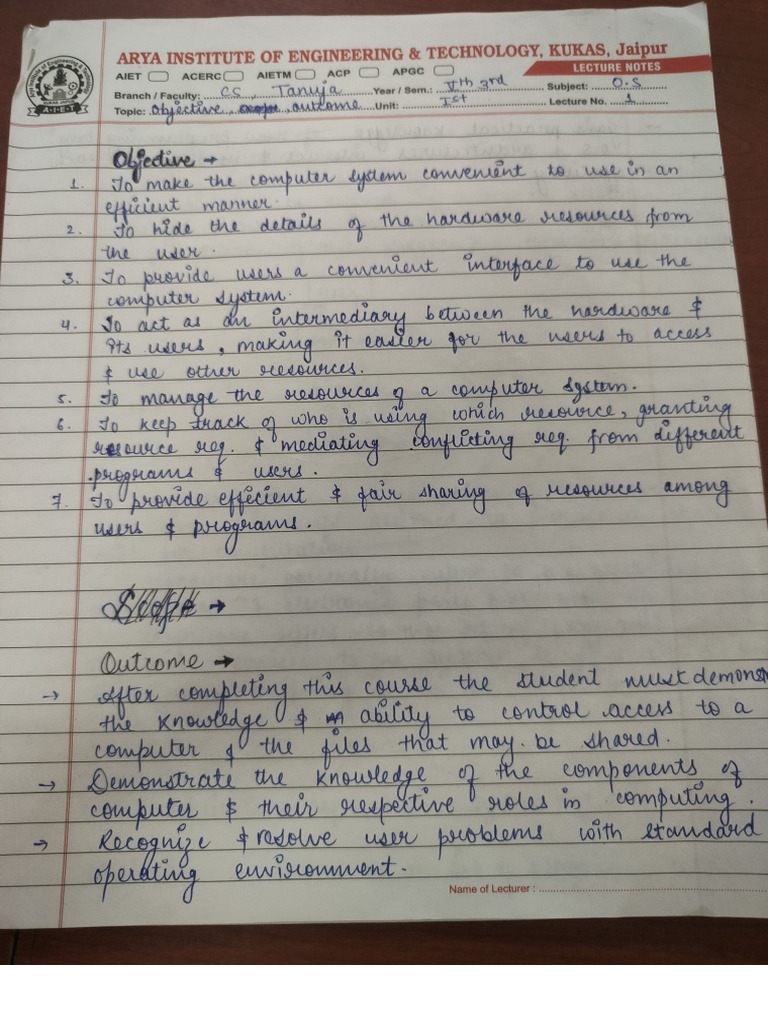 ARYA INSTITUTE OF ENGINEERING & TECHNOLOGY, KUKAS, Jaipur
LECTURE NOTES
AIET ACERC AIETM ACP APGC
Branch / Faculty: CS, Tanuja Year / Sem.: Vth 3rd Subject: O.S
Topic: Objective, outcome Unit: Ist Lecture No. 1
Objective →
1. To make the computer system convenient to use in an
efficient manner.
2. To hide the details of the hardware resources from
the user.
3. To provide users a convenient interface to use the
computer system.
4. To act as an intermediary between the hardware &
its users, making it easier for the users to access
& use other resources.
5. To manage the resources of a computer system.
6. To keep track of who is using which resource, granting
resource req. & mediating conflicting req. from different
programs & users.
7. To provide efficient & fair sharing of resources among
users & programs.
Scope →
Outcome →
→ After completing this course the student must demons
the knowledge & ability to control access to a
computer & the files that may be shared.
→ Demonstrate the knowledge of the components of
computer & their respective roles in computing.
→ Recognize & resolve user problems with standard
operating environment.
Name of Lecturer :